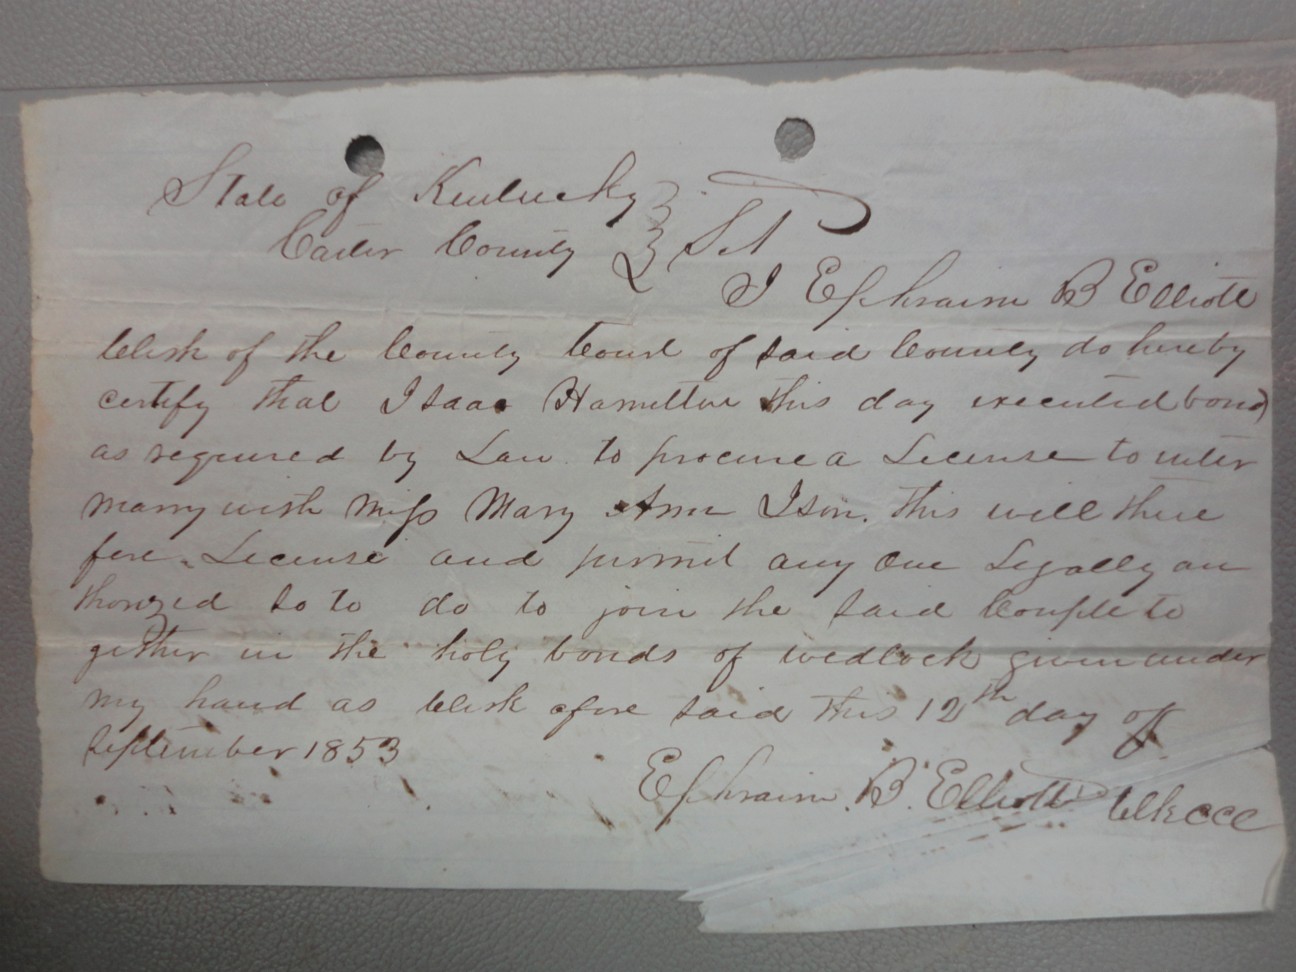 State of Kentucky }
Carter County } Sct
I Ephraim B Elliott
Clerk of the County Court of said County do hereby
certify that Isaac Hamilton this day executed bond
as required by Law to procure a License to inter
marry with Miss Mary Ann Ison. This will there
fore License and permit any One Legally au
thorized so to do to join the said Couple to
gether in the holy bonds of wedlock given under
my hand as Clerk afore said this 12th day of
September 1853
Ephraim B. Elliott Clk CCC